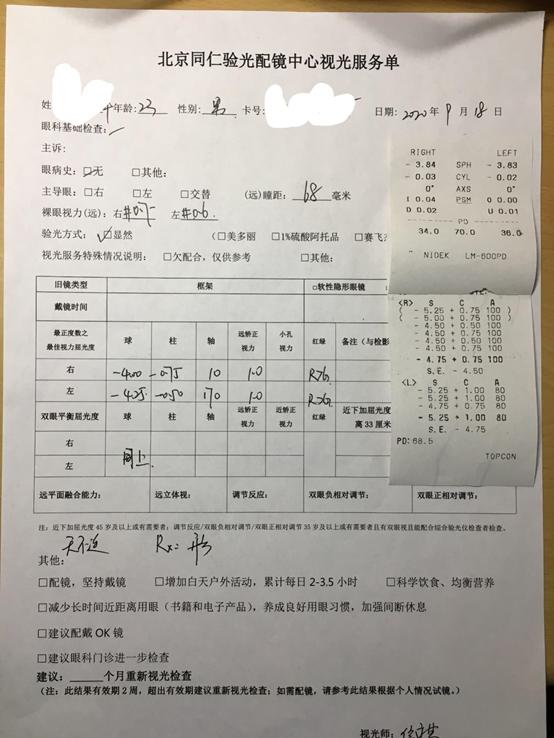 北京同仁验光配镜中心视光服务单
姓 年龄: 23 性别: 男 卡号: 日期: 2020 年 9 月 18 日
眼科基础检查:
主诉:
眼病史: □无 □其他:
主导眼: □右 □左 □交替 (远)瞳距: 68 毫米
裸眼视力(远): 右 左
验光方式: □显然 (□美多丽 □1%硫酸阿托品 □赛飞
视光服务特殊情况说明: □欠配合,仅供参考 □其他:
旧镜类型 框架 □软性隐形眼镜
戴镜时间
最正度数之最佳视力屈光度 球 柱 轴 远矫正视力 小孔视力 红绿 备注(与检影
右 -4.00 -0.75 10 1.0 R>G
左 -4.25 -0.50 170 1.0 R>G
双眼平衡屈光度 球 柱 轴 远矫正视力 近矫正视力 红绿 近下加屈光度 离33厘米
右 同上
左
远平面融合能力: 远立体视: 调节反应: 双眼负相对调节: 双眼正相对调节:
注: 近下加屈光度45岁及以上或有需要者; 调节反应/双眼负相对调节/双眼正相对调节35岁及以上或有需要者且有双眼视且能配合综合验光仪检查者检查。
其他:
□配镜,坚持戴镜 □增加白天户外活动,累计每日2-3.5小时 □科学饮食、均衡营养
□减少长时间近距离用眼(书籍和电子产品),养成良好用眼习惯,加强间断休息
□建议配戴OK镜
□建议眼科门诊进一步检查
建议: ______个月重新视光检查
(注: 此结果有效期2周,超出有效期建议重新视光检查; 如需配镜,请参考此结果根据个人情况试镜。)
视光师:
RIGHT LEFT
- 3.84 SPH - 3.83
- 0.03 CYL - 0.02
0° AXS 0°
I 0.04 PSM O 0.00
D 0.02 U 0.01
PD
34.0 70.0 36.0
NIDEK LM-600PD
<R> S C A
( - 5.25 + 0.75 100 )
( - 5.00 + 0.75 100 )
- 4.50 + 0.50 100
- 4.50 + 0.75 100
- 4.50 + 0.50 100
- 4.50 + 0.75 100
- 4.75 + 0.75 100
S.E. - 4.50
<L> S C A
- 5.25 + 1.00 80
- 5.25 + 1.00 80
- 4.75 + 0.75 80
- 5.25 + 1.00 80
S.E. - 4.75
PD: 68.5
TOPCON